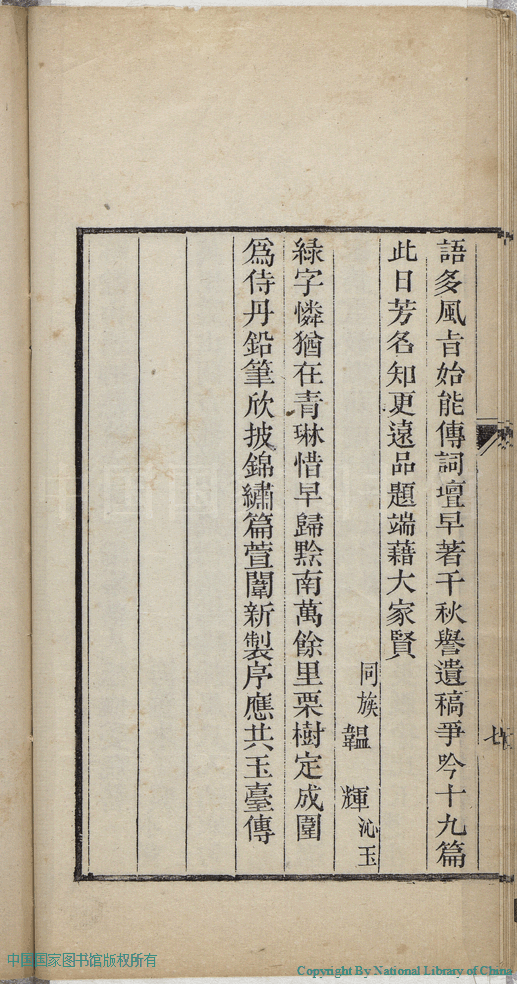 語多風旨始能傳詞壇早著千秋譽遺稿爭吟十九篇
此日芳名知更遠品題端藉大家賢
同族 韞輝 沁玉
綠字憐猶在青琳惜早歸黔南萬餘里栗樹定成圍
爲侍丹鉛筆欣披錦繡篇萱闈新製序應共玉臺傳
七
中国国家图书馆版权所有
Copyright By National Library of China